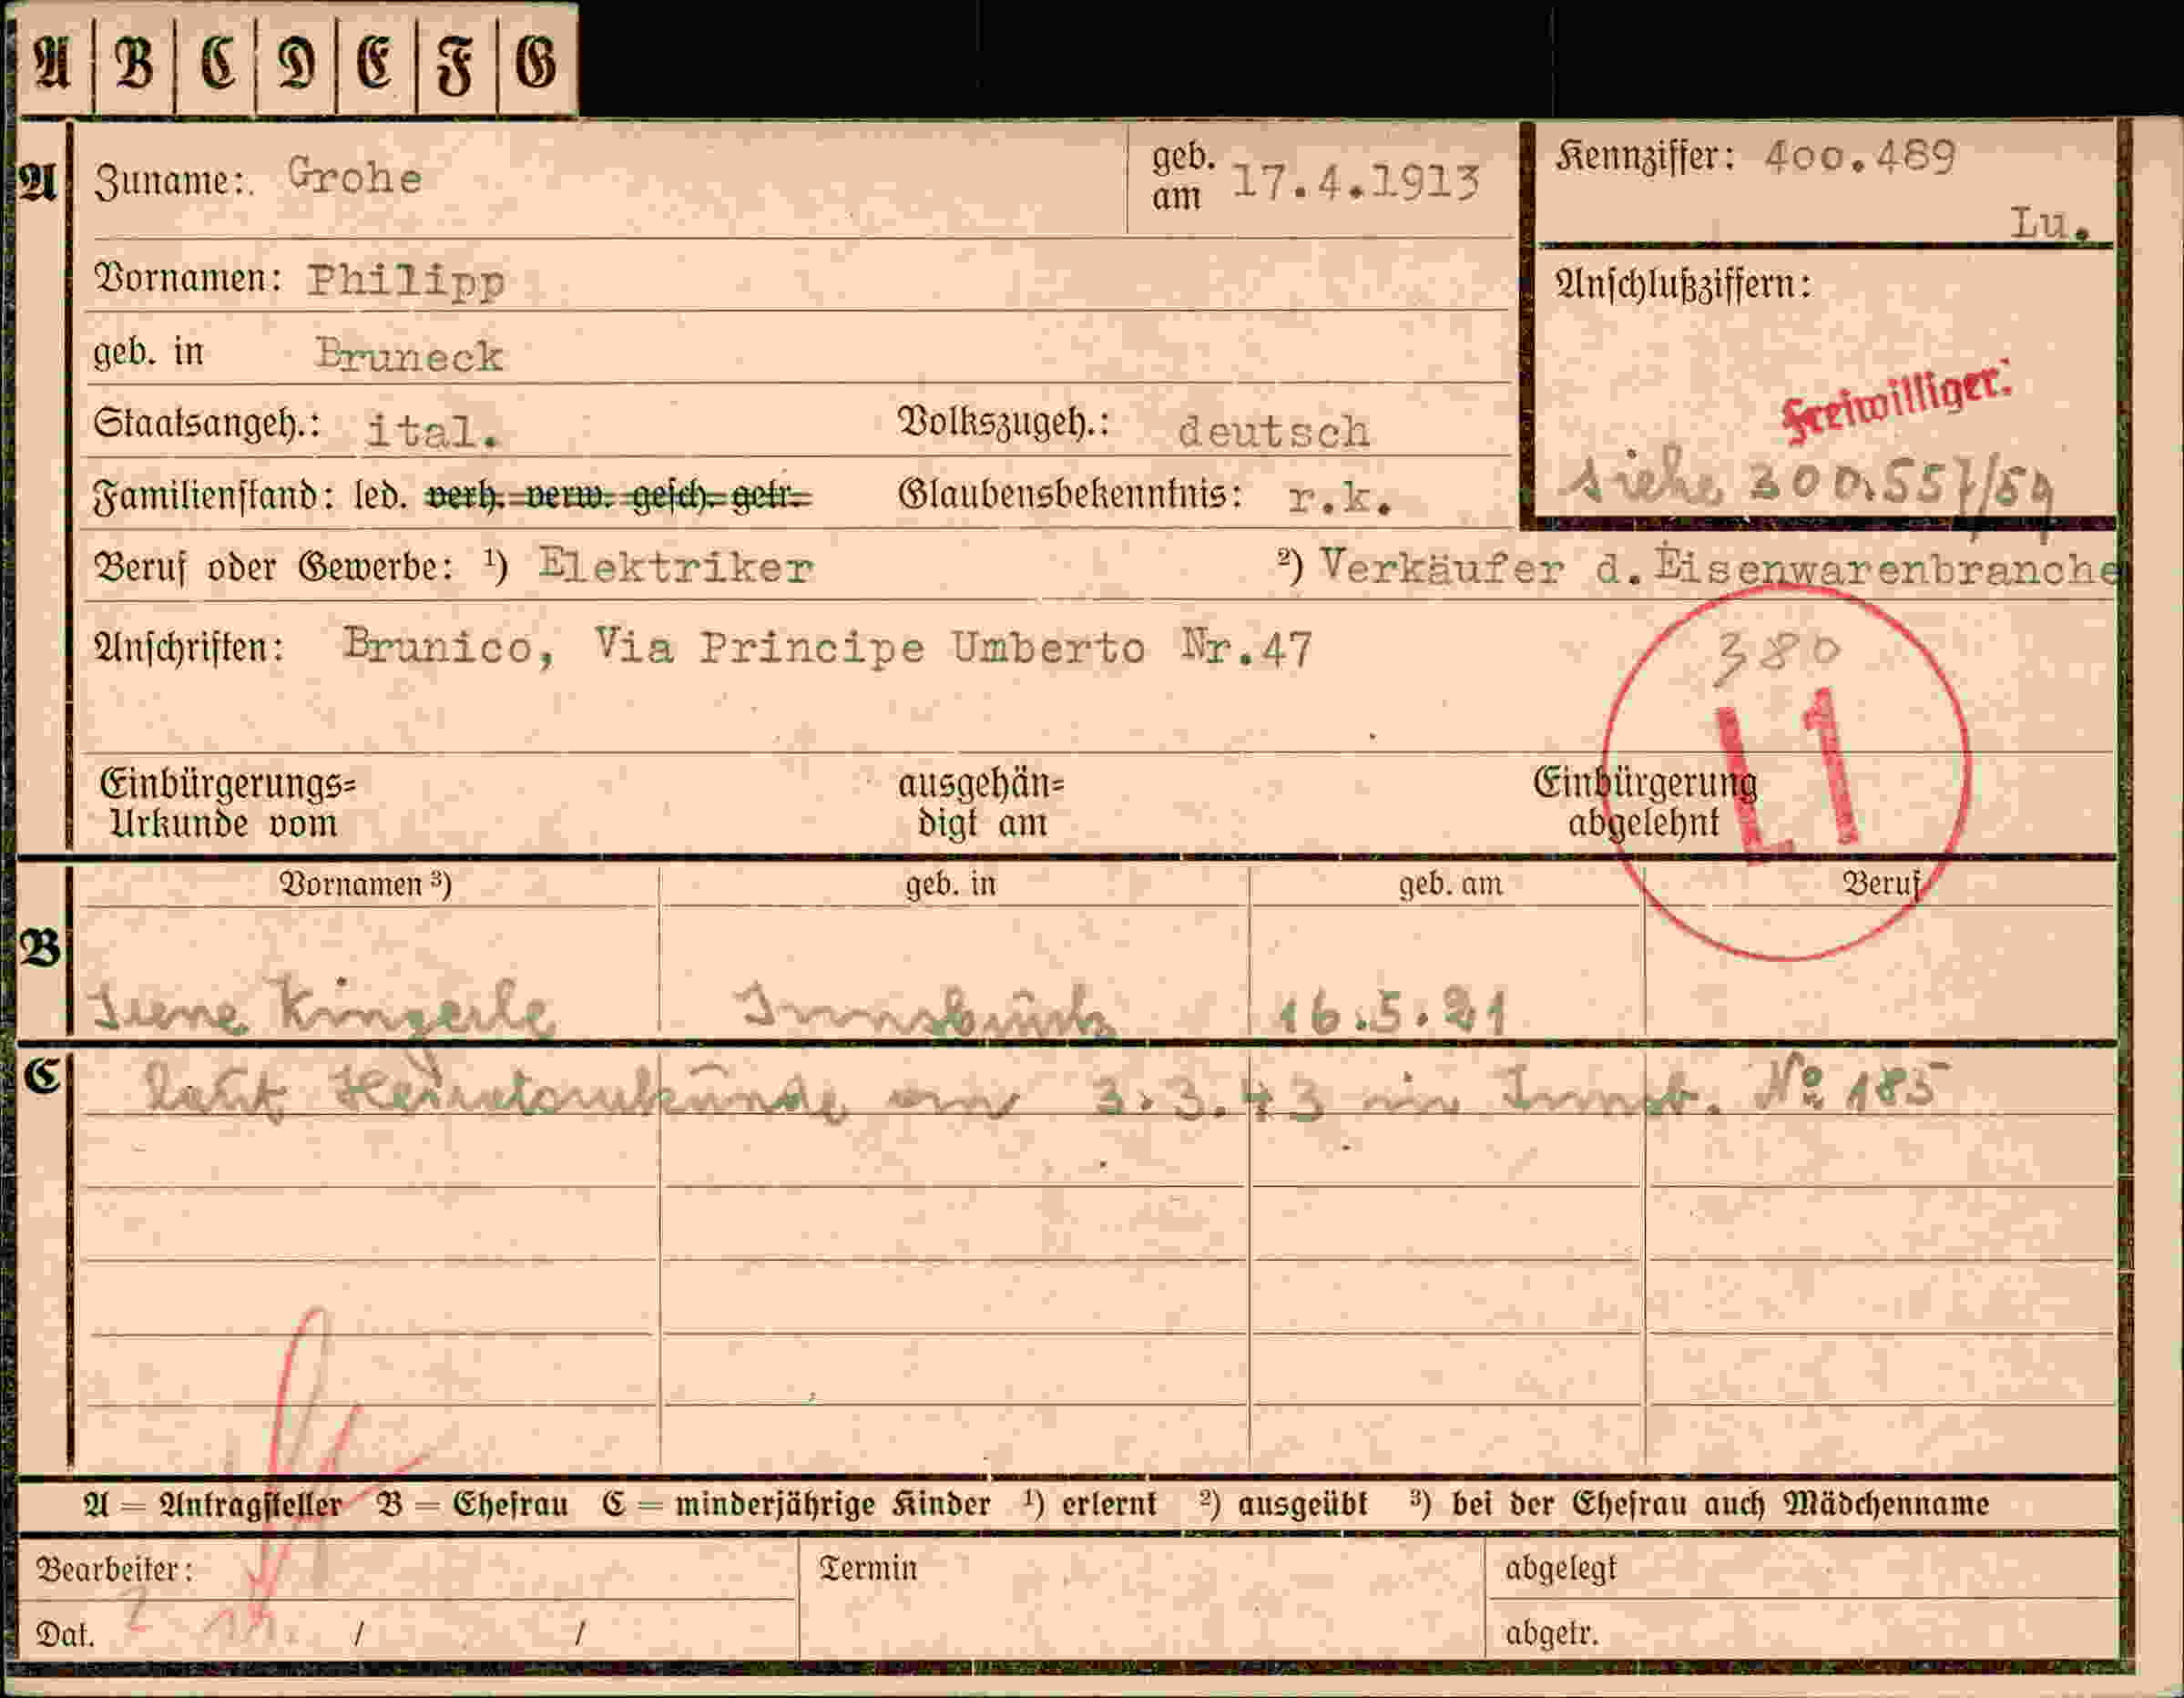 A B C D E F G
A Zuname: Grohe geb. am 17.4.1913 Kennziffer: 400.489
Lu.
Vornamen: Philipp Anschlußziffern:
geb. in Bruneck
Freiwilliger.
Staatsangeh.: ital. Volkszugeh.: deutsch
siehe 300.557/59
Familienstand: led. verh. verw. gesch. getr. Glaubensbekenntnis: r.k.
Beruf oder Gewerbe: ¹) Elektriker ²) Verkäufer d. Eisenwarenbranche
Anschriften: Brunico, Via Principe Umberto Nr.47
380
L1
Einbürgerungs= Urkunde vom ausgehän= digt am Einbürgerung abgelehnt
Vornamen ³) geb. in geb. am Beruf
B
Irene Kingerle Innsbruck 16.5.21
C laut Heiratsurkunde am 3.3.43 in Innsb. No 185
A = Antragsteller B = Ehefrau C = minderjährige Kinder ¹) erlernt ²) ausgeübt ³) bei der Ehefrau auch Mädchenname
Bearbeiter: Termin abgelegt
Dat. / / abgetr.